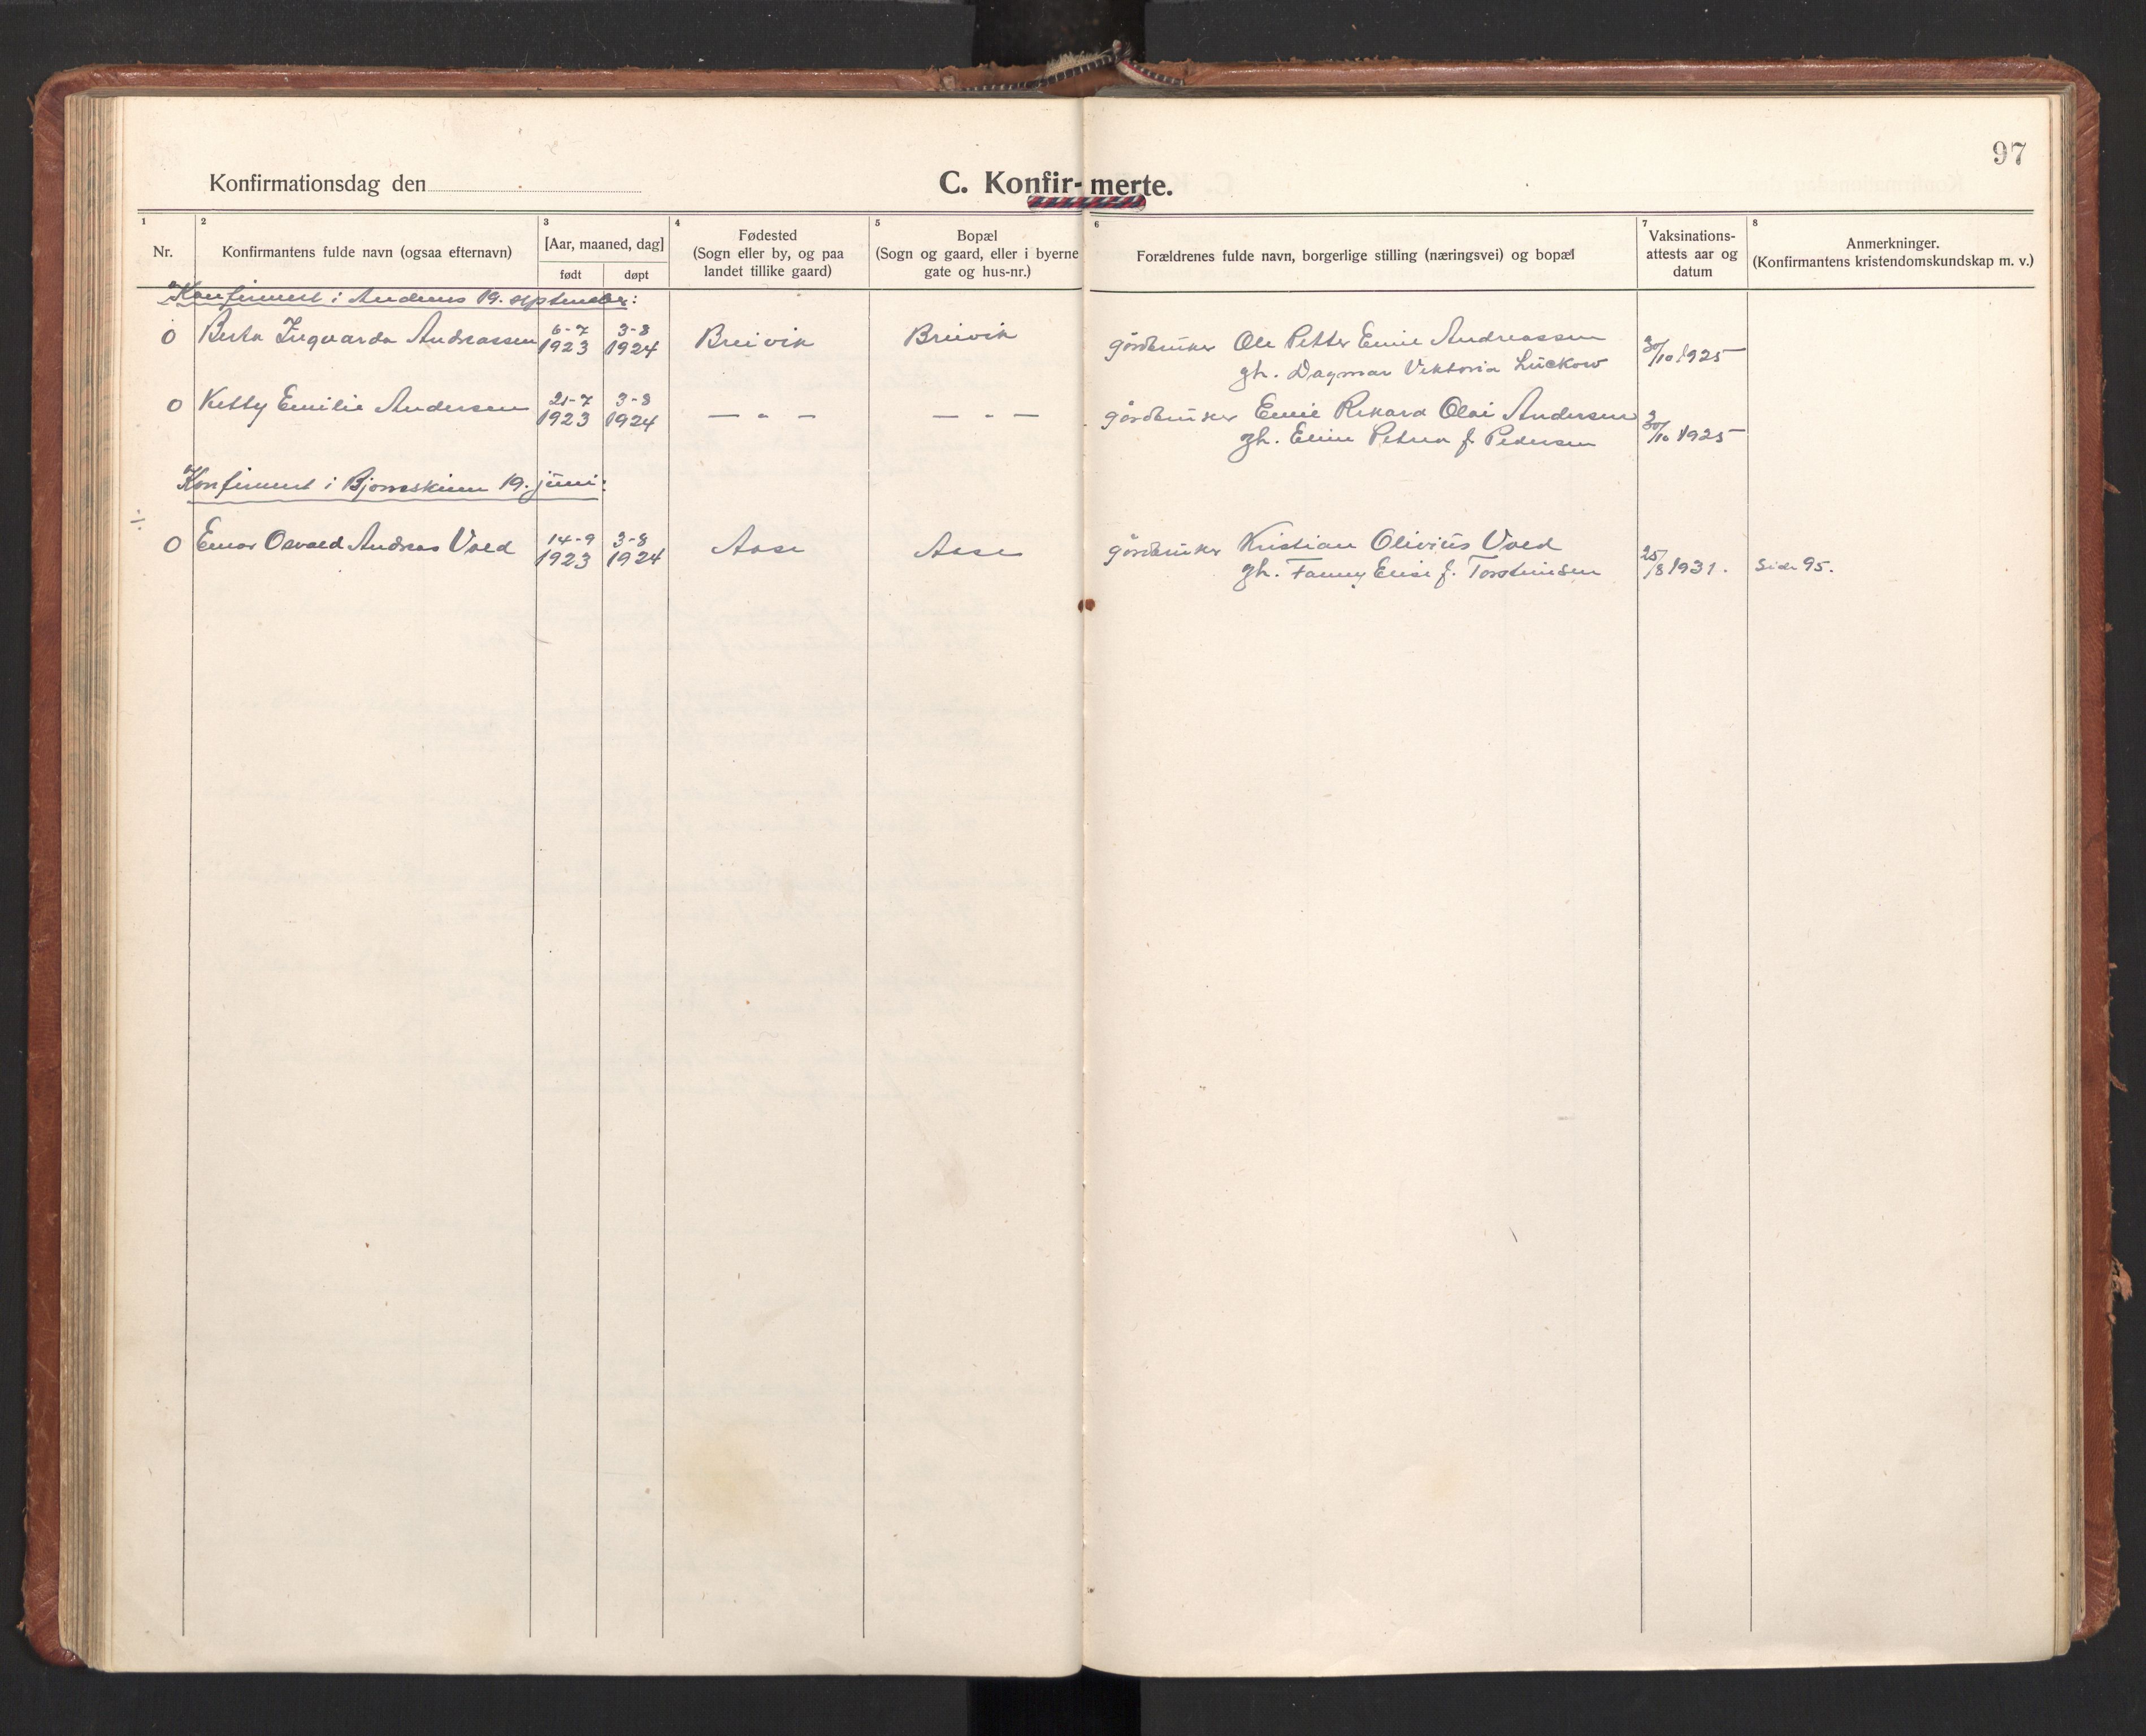 97
Konfirmationsdag den
C. Konfir- merte.
1 2 3 4 5 6 7 8
Nr.
Konfirmantens fulde navn (ogsaa efternavn)
[Aar, maaned, dag]
født døpt
Fødested
(Sogn eller by, og paa
landet tillike gaard)
Bopæl
(Sogn og gaard, eller i byerne
gate og hus-nr.)
Forældrenes fulde navn, borgerlige stilling (næringsvei) og bopæl
Vaksinations-
attests aar og
datum
Anmerkninger.
(Konfirmantens kristendomskundskap m. v.)
Konfirmert i Andenes 19. september:
0 Berta Ingvarda Andreassen 6-7 1923 3-8 1924 Breivik Breivik gårdbruker Ole Petter Emil Andreassen 30/10 1925
gh. Dagmar Viktoria Lückow
0 Ketty Emilie Andersen 21-7 1923 3-8 1924 — „ — — „ — gårdbruker Emil Rikard Olai Andersen 30/10 1925
gh. Eline Petrea f. Pedersen
Konfirmert i Bjørnskinn 19. juni:
÷
0 Einar Osvald Andreas Vold 14-9 1923 3-8 1924 Aase Aase gårdbruker Kristian Olivius Vold
gh. Fanny Elise f. Torsteinsen 25/8 1931. Side 95.